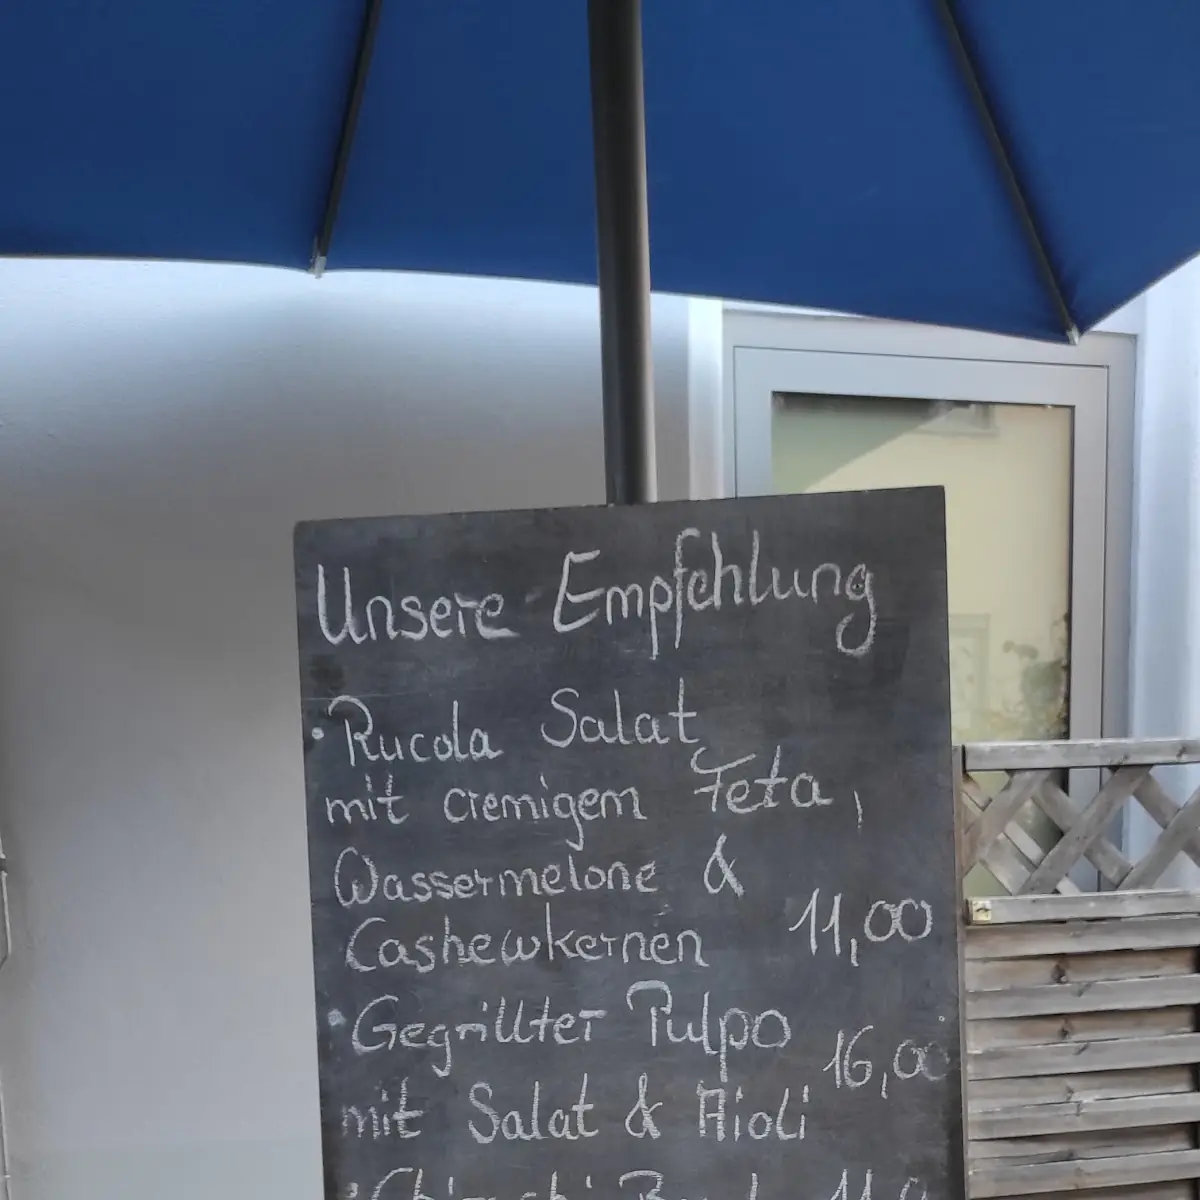 Unsere Empfehlung
• Rucola Salat
mit cremigem Feta,
Wassermelone &
Cashewkernen 11,00
• Gegrillter Pulpo 16,00
mit Salat & Aioli